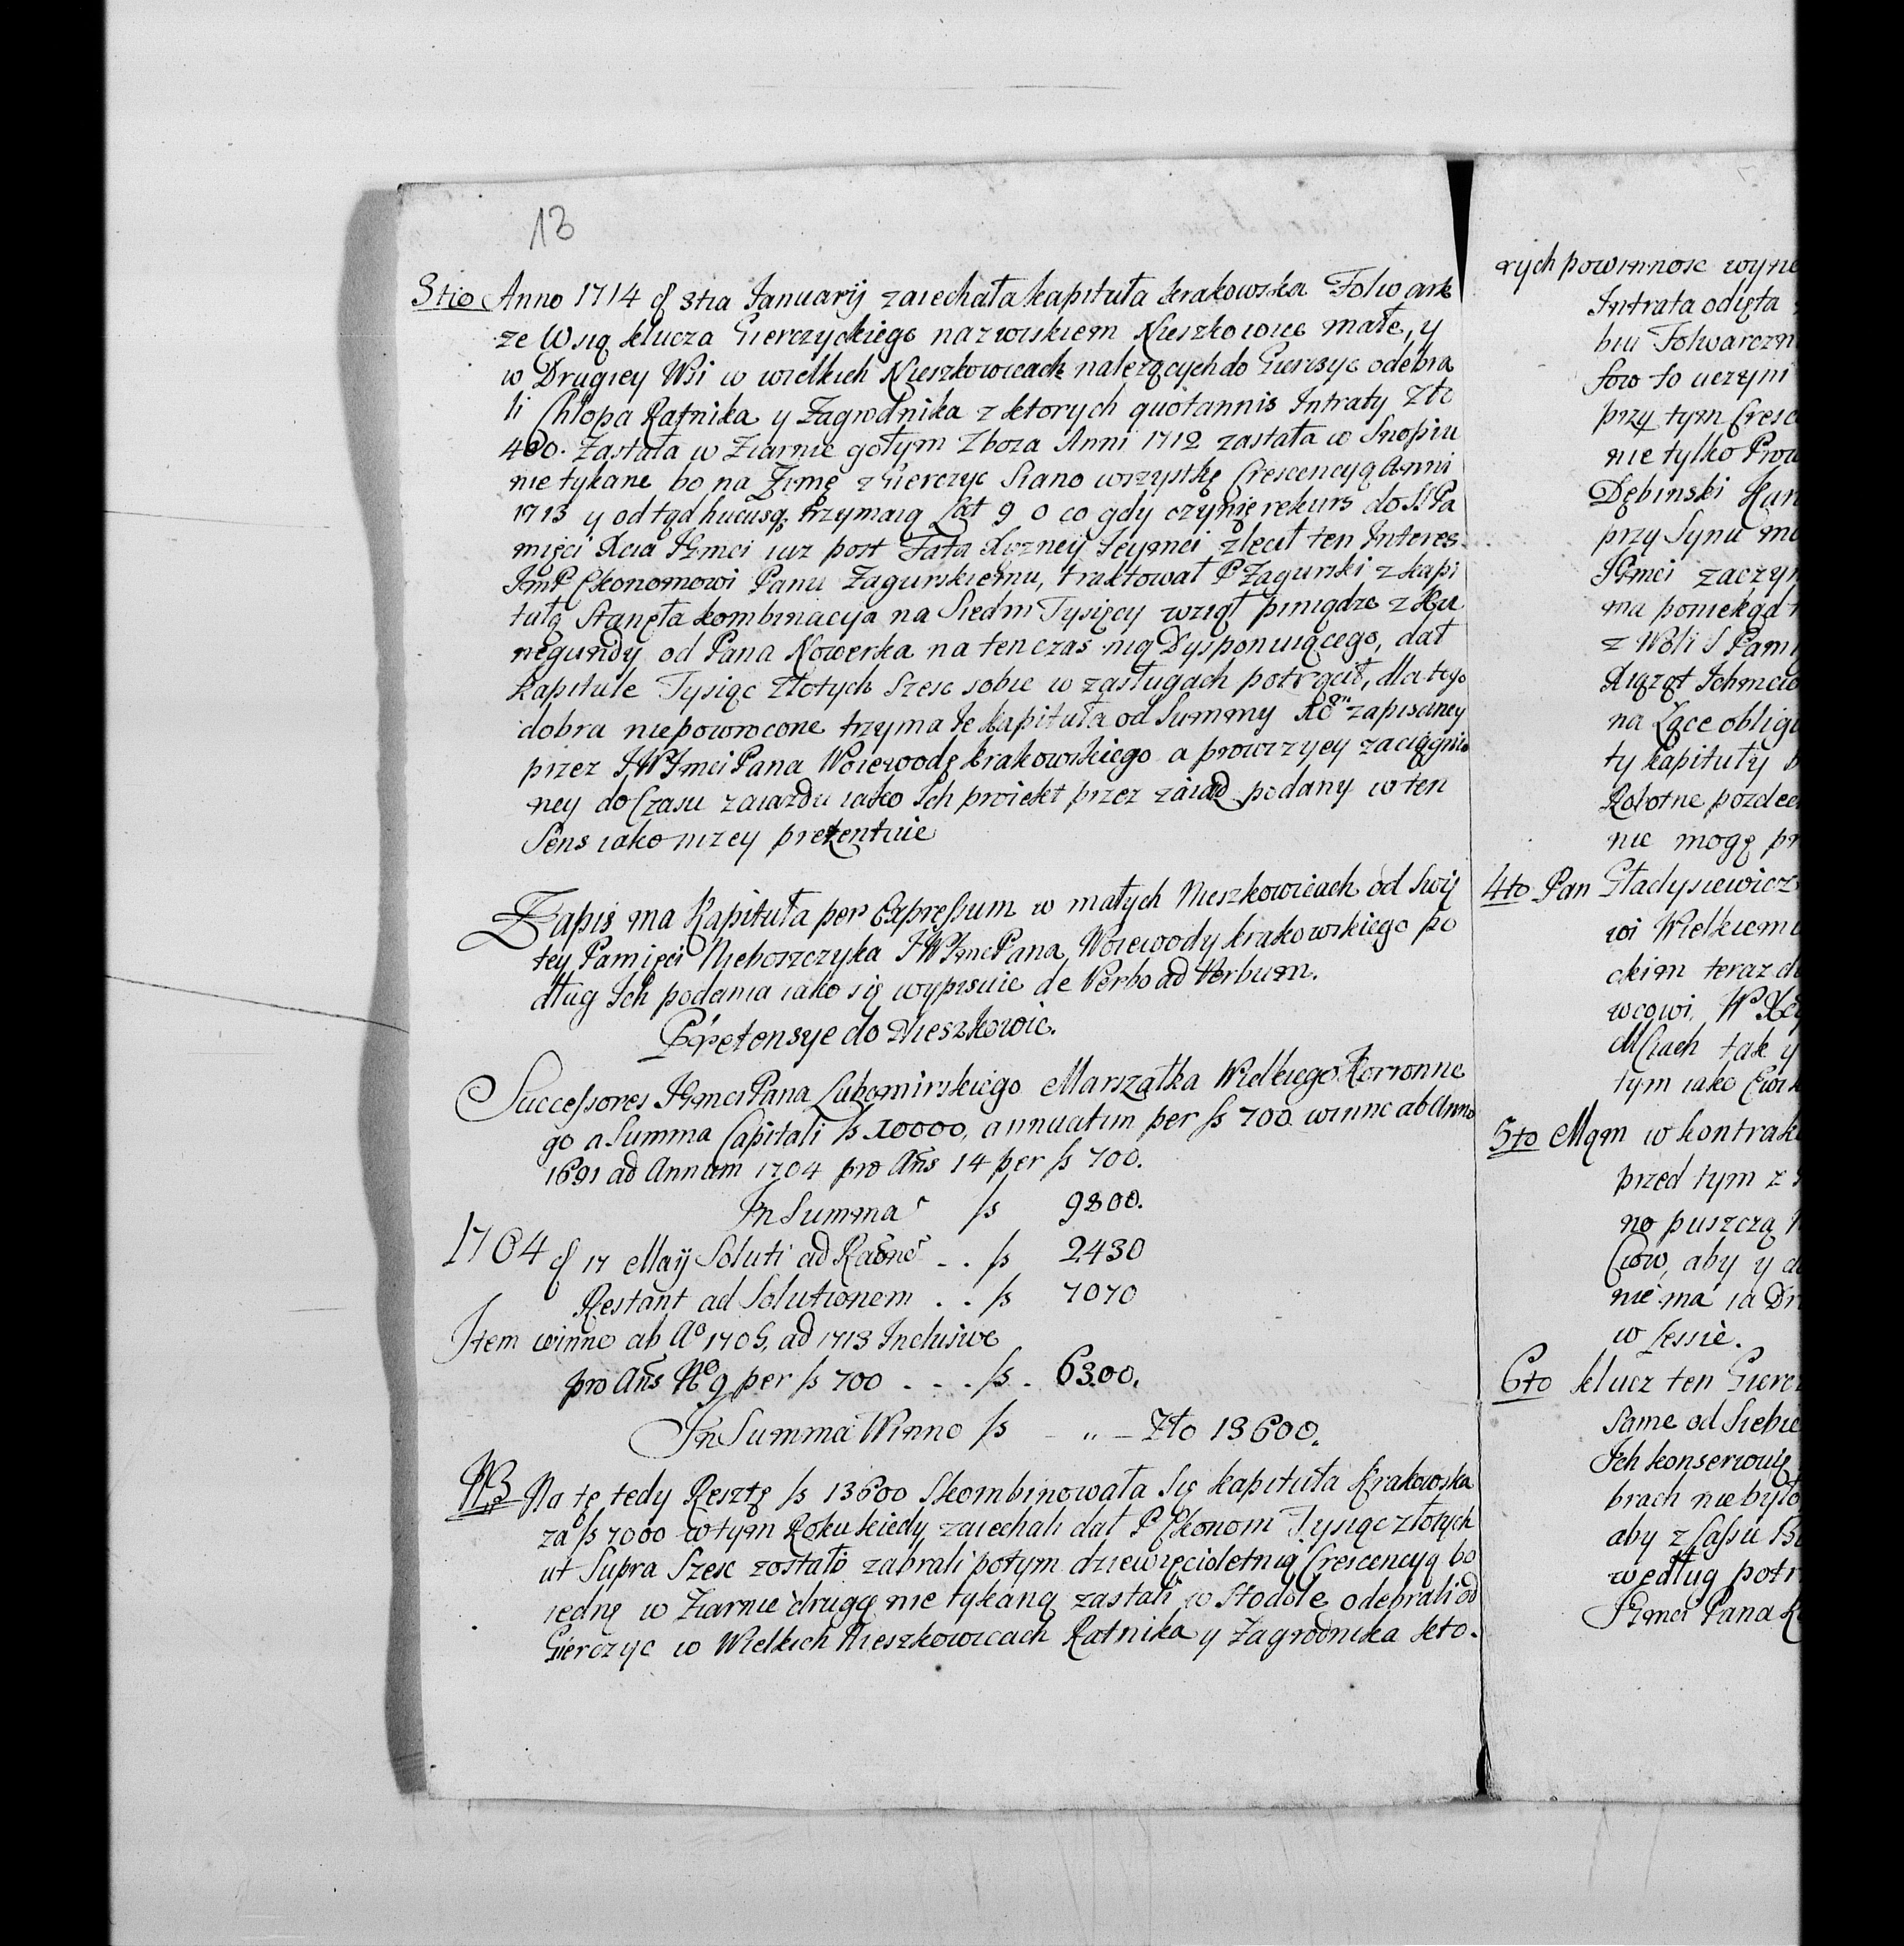 13
3tio Anno 1714 d 3tia Januarij zaiechała kapituła krakowska Folwark
ze Wsią klucza Gierczyckiego nazwiskiem Nieszkowice małe, y
w Drugiey Wsi w wielkich Nieszkowicach nalezących do Gierczyc odebra
li Chłopa Ratnika y Zagrodnika z ktorych quotannis Intraty Zło
400. Zastała w Ziarnie gołym Zboza Anni 1712 zastała w Snopiu
nie tykane bo na Zimę z Gierczyc Siano wszystkę Crescencyą Anni
1713 y od tąd hucusq trzymaią Lat 9 o co gdy czynię rekurs do S Pa
mięci Xcia Jmci iuz post Fata Xczney Jeymci zlecił ten Interes
JmP Ekonomowi Panu Zagurskiemu, traktował P Zagurski z kapi
tułą Stanęła kombinacya na Siedm Tysięcy wziął piniądze z Ku
negundy od Pana Nowerka na ten czas nią Dysponuiącego, dał
kapitule Tysiąc Złotych Szesc sobie w zasługach potrącił, dla tego
dobra niepowrocone trzyma Je kapituła od Summy zapisaney
przez JWJmci Pana Woiewodę krakowskiego a prowizyey zaciągnio
ney do Czasu zaiazdu iako Ich proiekt przez zaiazd podany w ten
Sens iako nizey prezentuie
Zapis ma Kapituła per Expressum w małych Nieszkowicach od Swię
tey Pamięci Nieboszczyka JWJmc Pana Woiewody krakowskiego po
dług Ich podania iako się wypisuie de Verbo ad Verbum.
Pretensye do Nieszkowic.
Successores Jmci Pana Lubomirskiego Marszałka Wielkiego Koronne
go a Summa Capitali fs 10000, annuatim per fs 700 winne ab Anno
1691 ad Annum 1704 pro Ans 14 per fs 700.
In Summa fs 9800.
1704 d 17 Maij Soluti ad Raōne . . fs 2430
Restant ad Solutionem . . fs 7070
Item winne ab Ao 1705, ad 1713 Inclusive
pro Ans No 9 per fs 700 . . . fs . 6300.
In Summa Winno fs - " - Zło 13600.
NB Na tę tedy Resztę fs 13600 Skombinowała Się kapituła Krakowska
za fs 7000 w tym Roku kiedy zaiechali dał P Ekonom Tysiąc złotych
ut Supra Szesc zostało zabrali potym dziewięcioletnią Crescencyą bo
iednę w Ziarnie drugę nie tykaną zastali w Stodole odebrali od
Gierczyc w Wielkich Nieszkowicach Ratnika y Zagrodnika kto-
rych powinnosc wyne
Intrata odięta
biu Folwarczn
fow to uczyni
przy tym Cresc
nie tylko Prow
Dębinski Kan
przy Synu mo
Jmci zaczyn
ma poniekąd
z Woli S Pami
Xiąząt Ichmcio
na Łące oblig
ty kapituły
Robotne pozdee
nie mogę pr
4to Pan Gładysiewicz
wi Wielkiemu
ckim teraz d
wcowi, W Xię
MSciach tak y
tym iako
5to Mam w kontrak
przed tym z
no puszczą
Ciow, aby y d
nie ma ia Dr
w Lessie.
6to klucz ten Gierc
Same od Siebie
Ich konserwuię
brach nie było
aby z Lassu
według potr
Jmci Pana